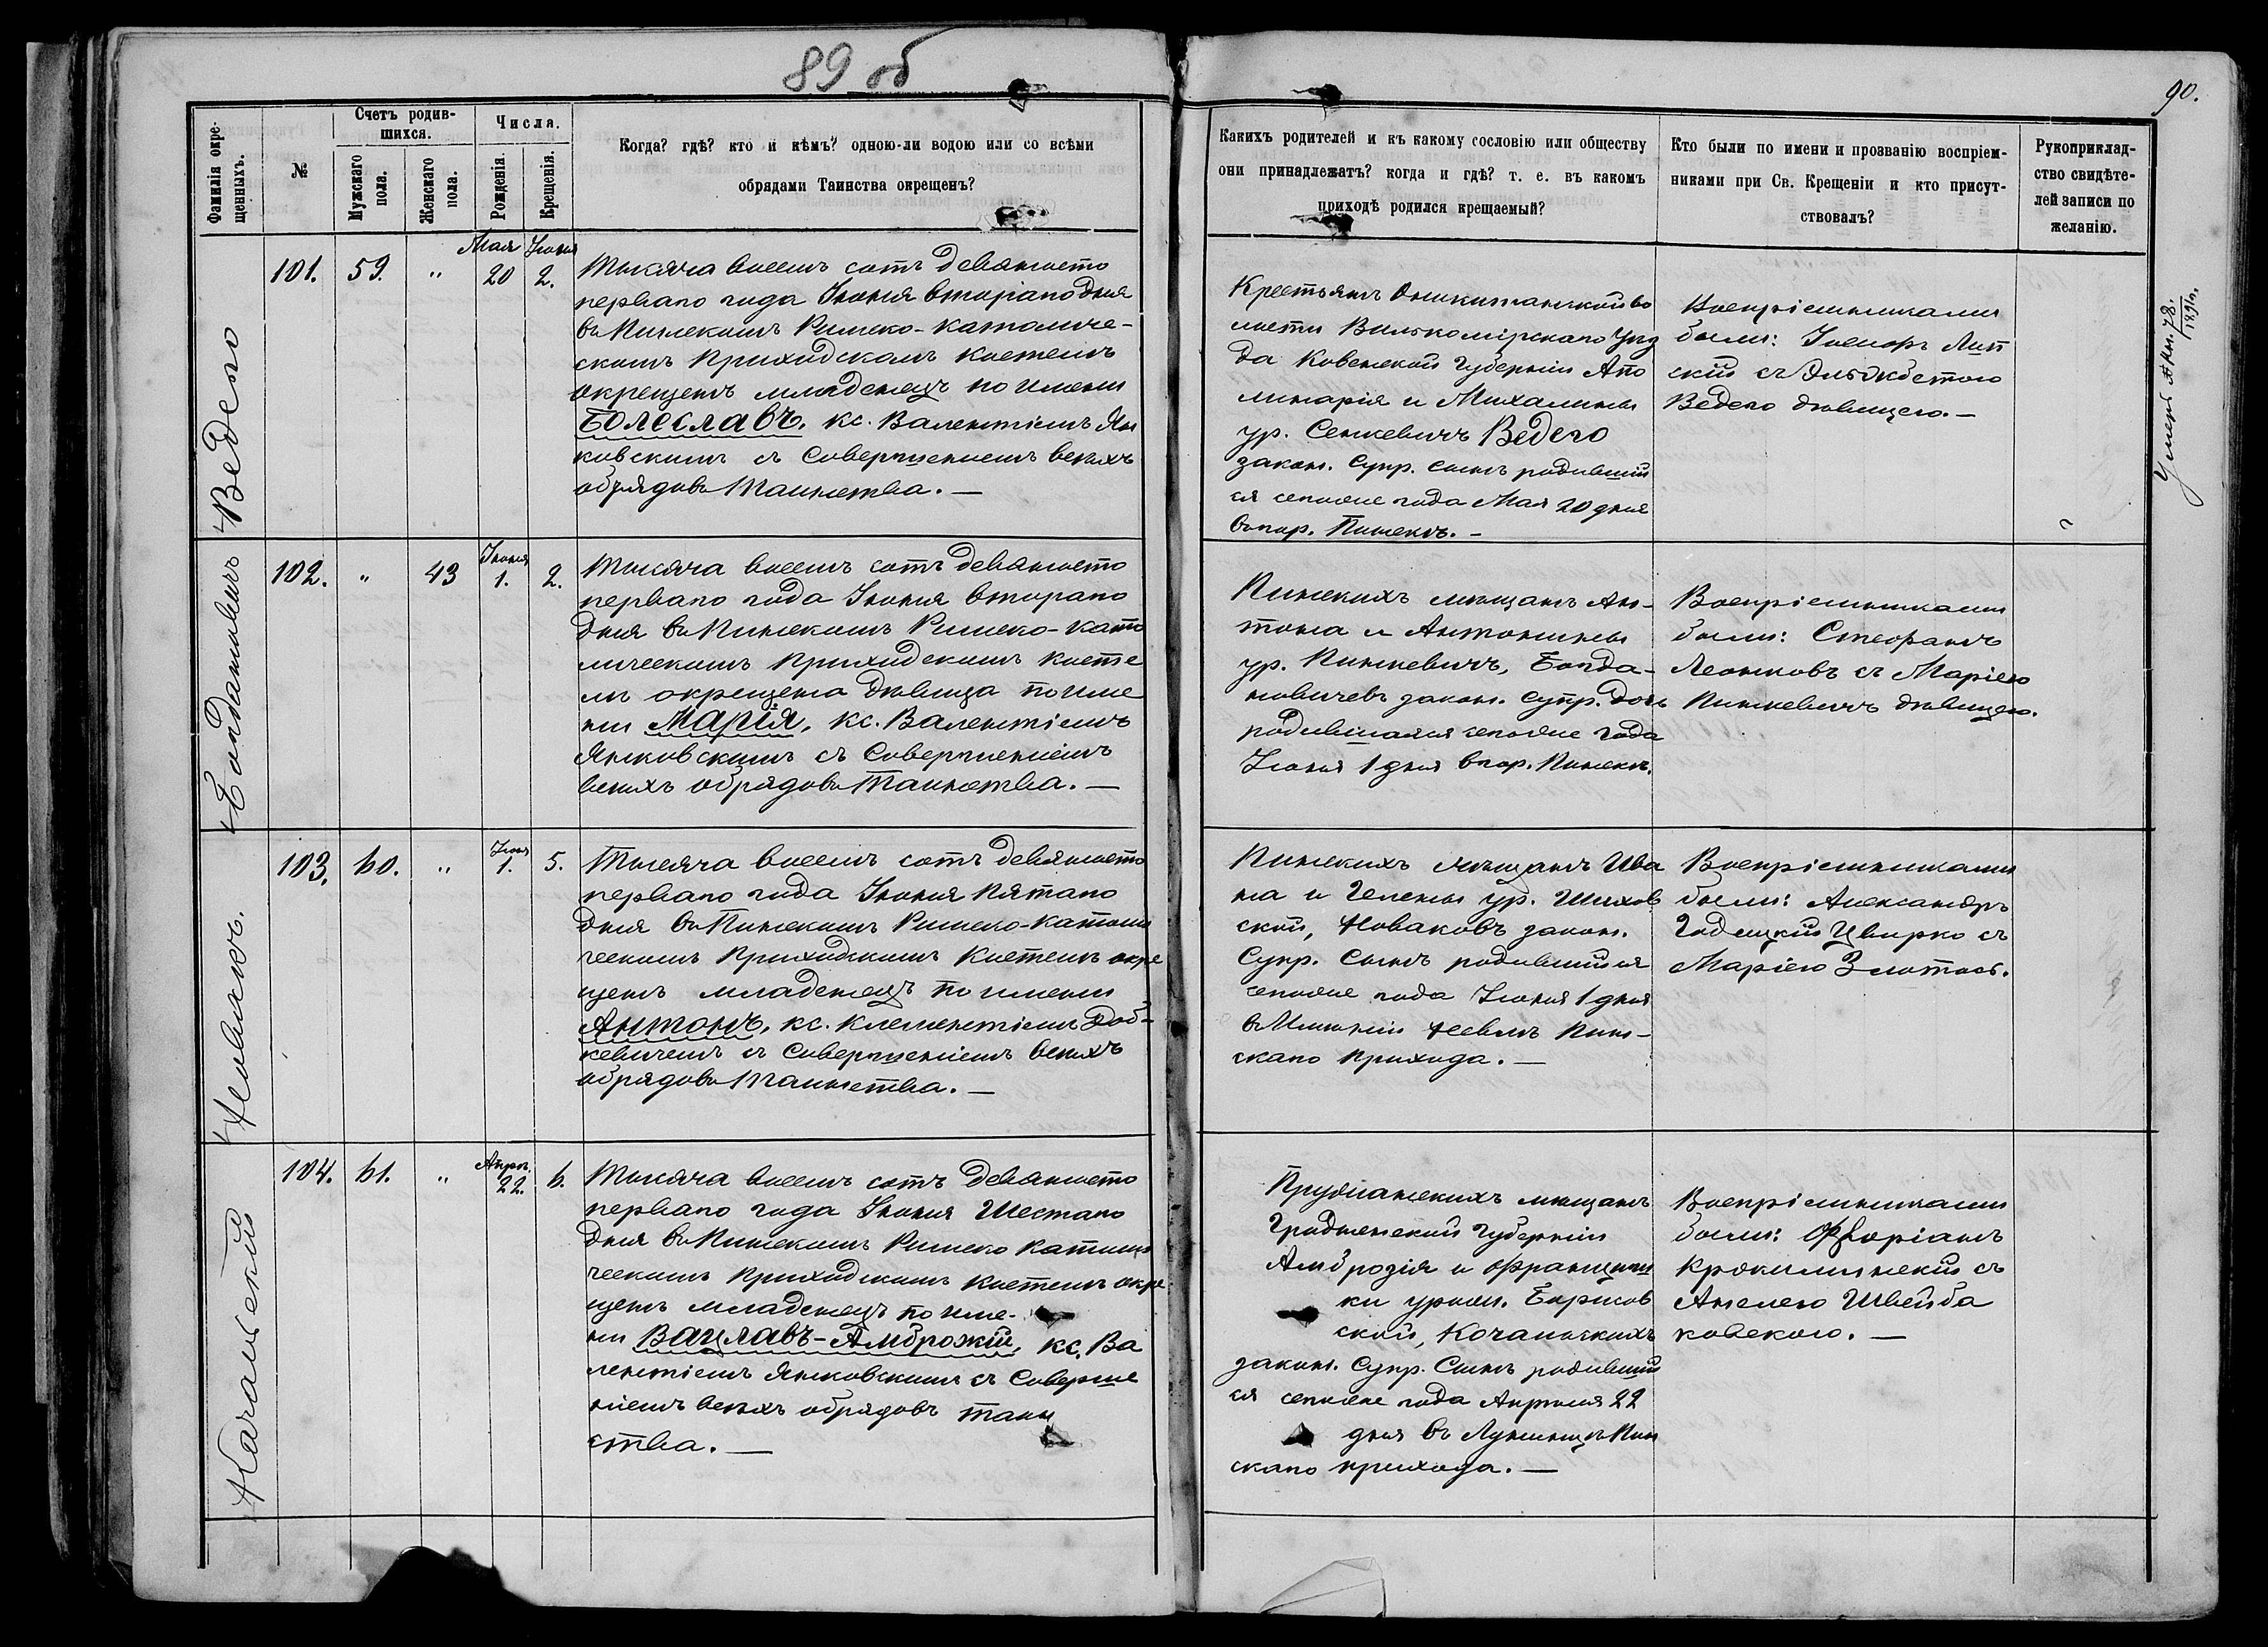 89 об
90.
Фамилія окре-
щенныхъ.
№
Счетъ родив-
шихся.
Мужскаго
пола.
Женскаго
пола.
Числа.
Рожденія.
Крещенія.
Когда? гдѣ? кто и кѣмъ? одною-ли водою или со всѣми
обрядами Таинства окрещенъ?
Каихъ родителей и къ какому сословію или обществу
они принадлежатъ? когда и гдѣ? т. е. въ какомъ
приходѣ родился крещаемый?
Кто были по имени и прозванію воспріем-
никами при Св. Крещеніи и кто присут-
ствовалъ?
Рукоприклад-
ство свидѣте-
лей записи по
желанію.
Ведего
101.
59.
"
Мая
20
Іюня
2.
Тысяча восемь сотъ девяносто
перваго года Іюня втораго дня
въ Пинскомъ Римско-католиче-
скомъ Приходскомъ Костелѣ
окрещенъ младенецъ по имени
Болеславъ, кс. Валентіемъ Ян
ковскимъ съ совершеніемъ всѣхъ
обрядовъ Таинства. —
Крестьянъ Оникштынской во
лости Вилькомірскаго Уѣз
да Ковенской Губерніи Апо
линарія и Михалины
ур. Сенкевичъ Ведего
закон. Супр. сынъ родивший
ся сего же года Мая 20 дня
въ пар. Пинскѣ. —
Воспріемниками
были: Іосифъ Лип
скій съ Эльжбетою
Ведего дѣвицею. —
Умеръ
1891 г.
Богдановичъ
102.
"
43
Іюня
1.
2.
Тысяча восемь сотъ девяносто
перваго года Іюня втораго
дня въ Пинскомъ Римско-като
лическомъ Приходскомъ Косте
лѣ окрещена дѣвица по име
ни Марія, кс. Валентіемъ
Янковскимъ съ совершеніемъ
всѣхъ обрядовъ Таинства. —
Пинскихъ мѣщанъ Ан-
тона и Антонины
ур. Пинкевичъ, Богда-
новичевъ закон. Супр. дочь
родившаяся сего же года
Іюня 1 дня въ пар. Пинск.
Воспріемниками
были: Стефанъ
Леонковъ съ Маріею
Пинкевичъ дѣвицею.
Новакъ.
103.
60.
"
Іюня
1.
5.
Тысяча восемь сотъ девяносто
перваго года Іюня пятаго
дня въ Пинскомъ Римско-католи
ческомъ Приходскомъ Костелѣ окре
щенъ младенецъ по имени
Антонъ, кс. Клементіемъ Дод-
кевичемъ съ совершеніемъ всѣхъ
обрядовъ Таинства. —
Пинскихъ мѣщанъ Ива
на и Гелены ур. Шихов
ской, Новаковъ закон.
Супр. Сынъ родившийся
сего же года Іюня 1 дня
въ Имѣніи Невель Пин-
скаго прихода. —
Воспріемниками
были: Александръ
Годлицкій Цвирко съ
Маріею Злотов.
Качанскій
104.
61.
"
Апрѣл.
22.
6.
Тысяча восемь сотъ девяносто
перваго года Іюня Шестаго
дня въ Пинскомъ Римско Католи
ческомъ Приходскомъ Костелѣ окре
щенъ младенецъ по име-
ни Вацлавъ-Амброжій, кс. Ва
лентіемъ Янковскимъ съ соверше
ніемъ всѣхъ обрядовъ таин
ства. —
Пружанскихъ мѣщанъ
Гродненской Губерніи
Амброзія и Францишк
ки урож. Борисов
ской, Кочанскихъ
закон. Супр. Сынъ родивший
ся сего же года Апрѣля 22
дня въ Лунинцѣ Пин
скаго прихода. —
Воспріемниками
были: Флоріанъ
съ
Анелею Швейба
ковскою. —